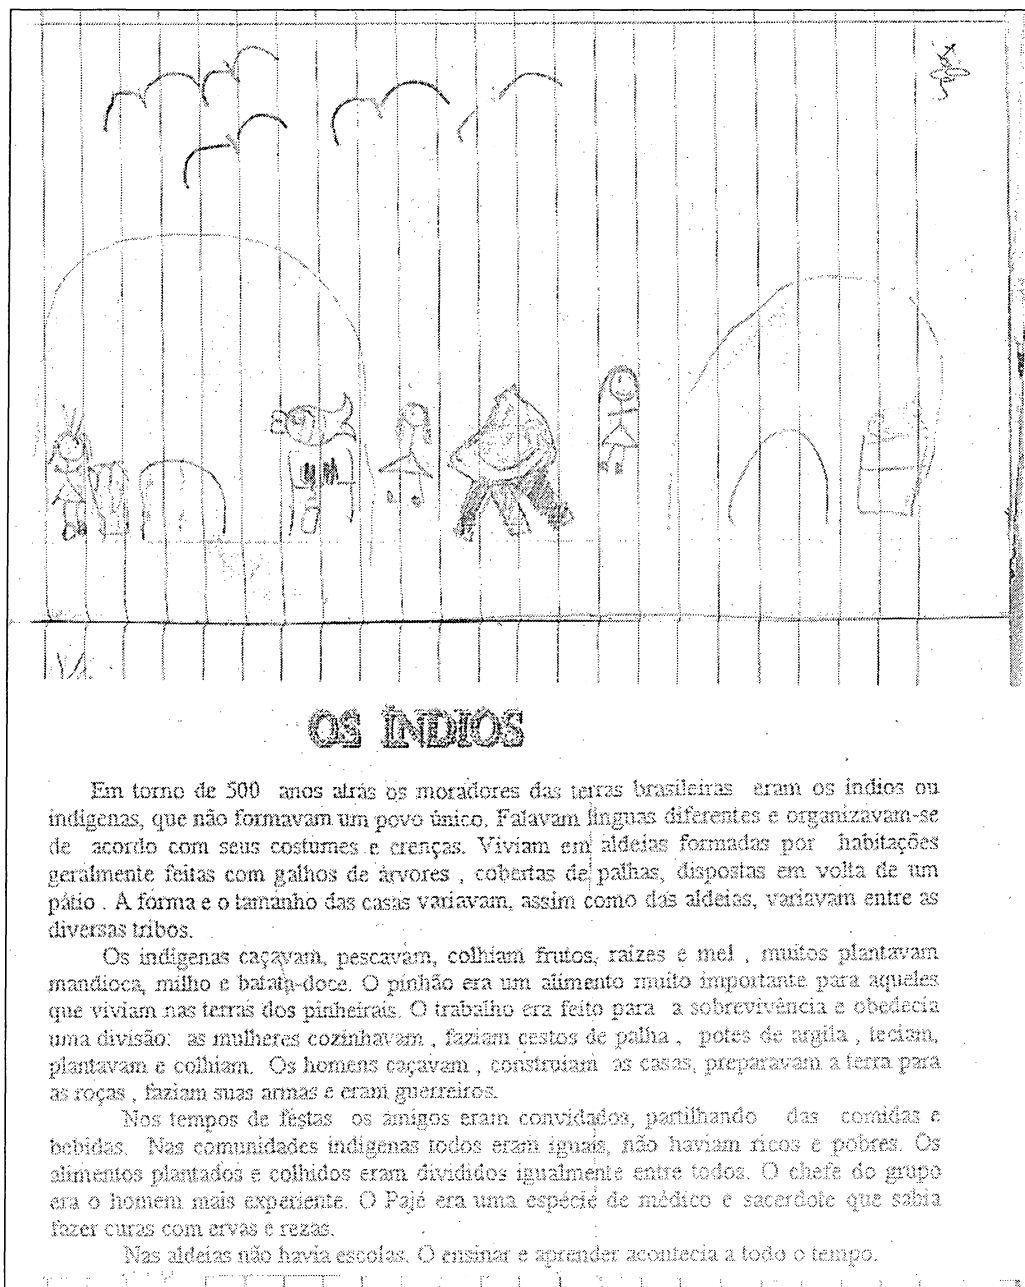 OS ÍNDIOS
Em torno de 500 anos atrás os moradores das terras brasileiras eram os índios ou
indígenas, que não formavam um povo único. Falavam línguas diferentes e organizavam-se
de acordo com seus costumes e crenças. Viviam em aldeias formadas por habitações
geralmente feitas com galhos de árvores , cobertas de palhas, dispostas em volta de um
pátio . A forma e o tamanho das casas variavam, assim como das aldeias, variavam entre as
diversas tribos.
Os indígenas caçavam, pescavam, colhiam frutos, raízes e mel , muitos plantavam
mandioca, milho e batata-doce. O pinhão era um alimento muito importante para aqueles
que viviam nas terras dos pinheirais. O trabalho era feito para a sobrevivência e obedecia
uma divisão: as mulheres cozinhavam , faziam cestos de palha , potes de argila , teciam,
plantavam e colhiam. Os homens caçavam , construíam as casas, preparavam a terra para
as roças , faziam suas armas e eram guerreiros.
Nos tempos de festas os amigos eram convidados, partilhando das comidas e
bebidas. Nas comunidades indígenas todos eram iguais, não haviam ricos e pobres. Os
alimentos plantados e colhidos eram divididos igualmente entre todos. O chefe do grupo
era o homem mais experiente. O Pajé era uma espécie de médico e sacerdote que sabia
fazer curas com ervas e rezas.
Nas aldeias não havia escolas. O ensinar e aprender acontecia a todo o tempo.